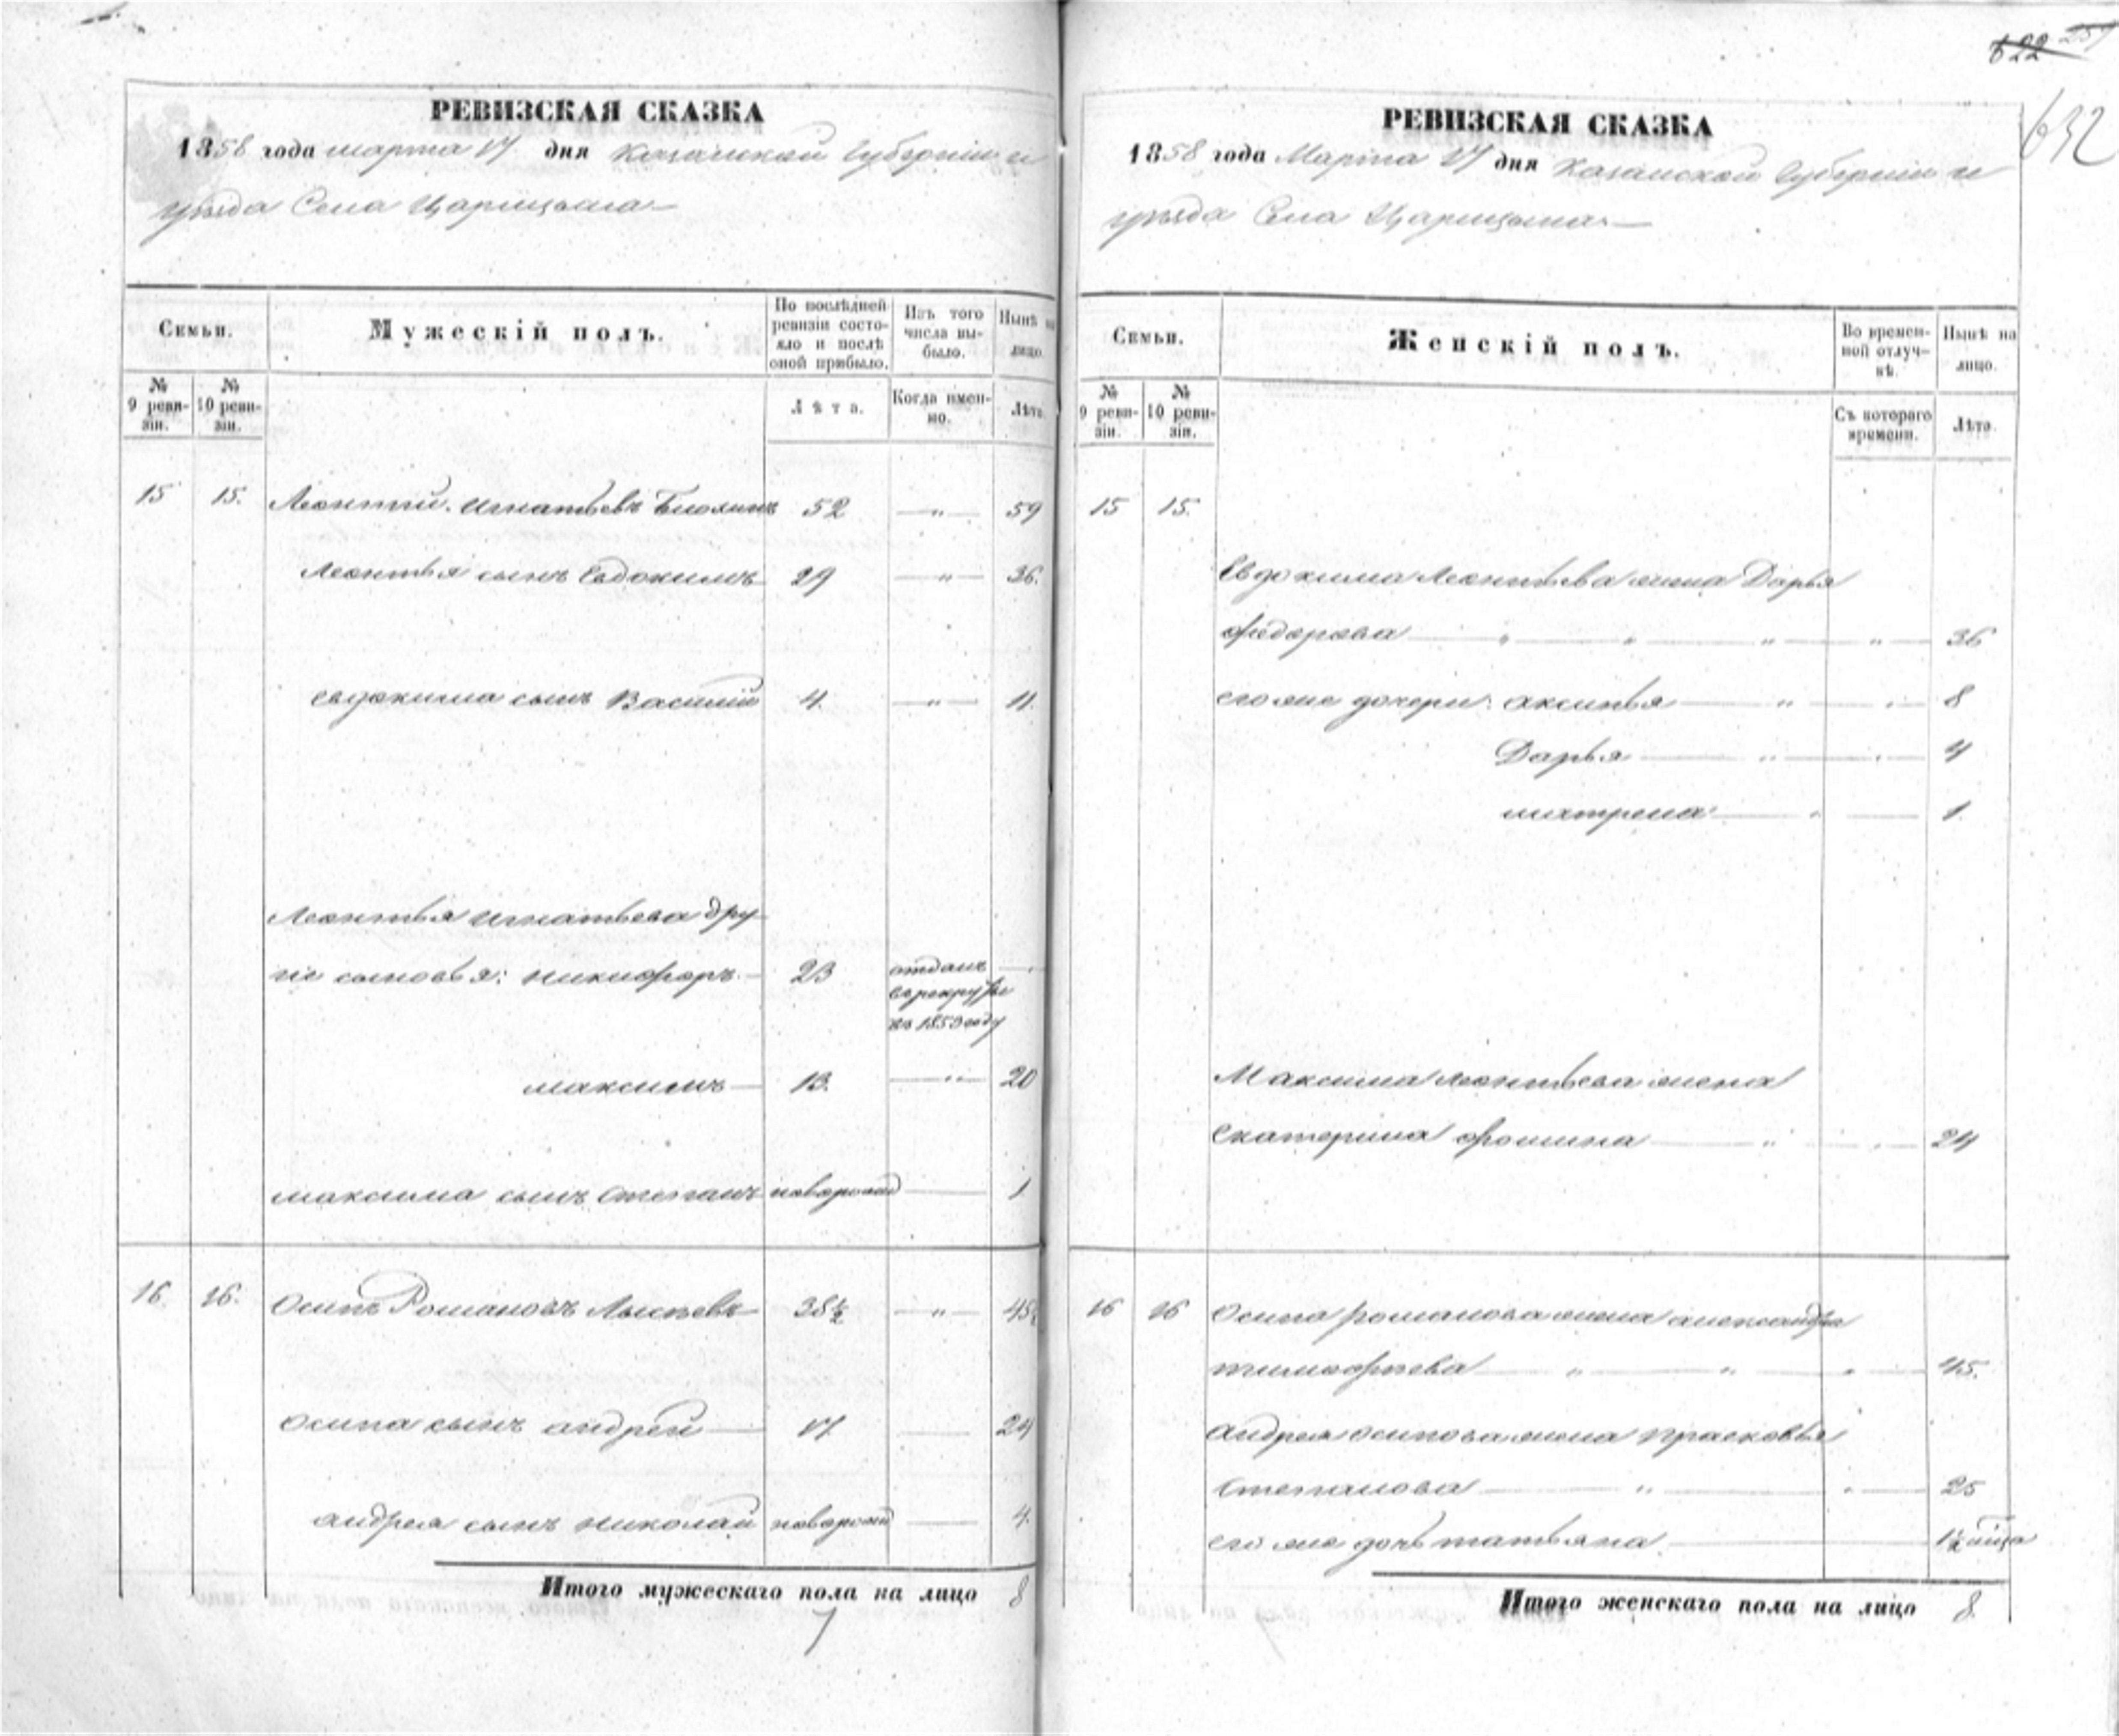 РЕВИЗСКАЯ СКАЗКА
1858 года марта 17 дня Казанской Губерніи и
уѣзда Села Царицына
Семьи.
Мужескій полъ.
По послѣдней ревизіи состояло и послѣ оной прибыло.
Изъ того числа выбыло.
Нынѣ на лицо.
№ 9 ревизіи.
№ 10 ревизіи.
Лѣта.
Когда именно.
Лѣта.
15 15. Леонтій Игнатьевъ 52 — " — 59
Леонтья сынъ Евдокимъ 29 — " — 36.
Евдокима сынъ Василій 4. — " — 11.
Леонтья Игнатьева дру-
гіе сыновья: Никифоръ — 23 отданъ
въ рекруты
въ 1853 году
Максимъ — 13. — " — 20
Максима сынъ Степанъ новорожд — 1
16. 16. Осипъ Романовъ 38½ — " — 45½
Осипа сынъ Андрей — 17. — 24
Андрея сынъ Николай новорожд — 4.
Итого мужескаго пола на лицо 8
7
622
632
РЕВИЗСКАЯ СКАЗКА
1858 года Марта 17 дня Казанской Губерніи и
уѣзда Села Царицына —
Семьи.
Женскій полъ.
Во временной отлучкѣ.
Нынѣ на лицо.
№ 9 ревизіи.
№ 10 ревизіи.
Съ котораго времени.
Лѣта.
15 15.
Евдокима Леонтьева жена Дарья
Федорова — " — " — " — " — 36
его же дочери: Аксинья — " — " — 8
Дарья — " — " — 4
Матрена — " — 1.
Максима Леонтьева жена
Екатерина Фомина — " — " — 24
16 16 Осипа Романова жена Александра
Тимофѣева — " — " — " — 45.
Андрея Осипова жена Прасковья
Степанова — " — " — 25
его же дочь Татьяна — 1½
Итого женскаго пола на лицо 8.